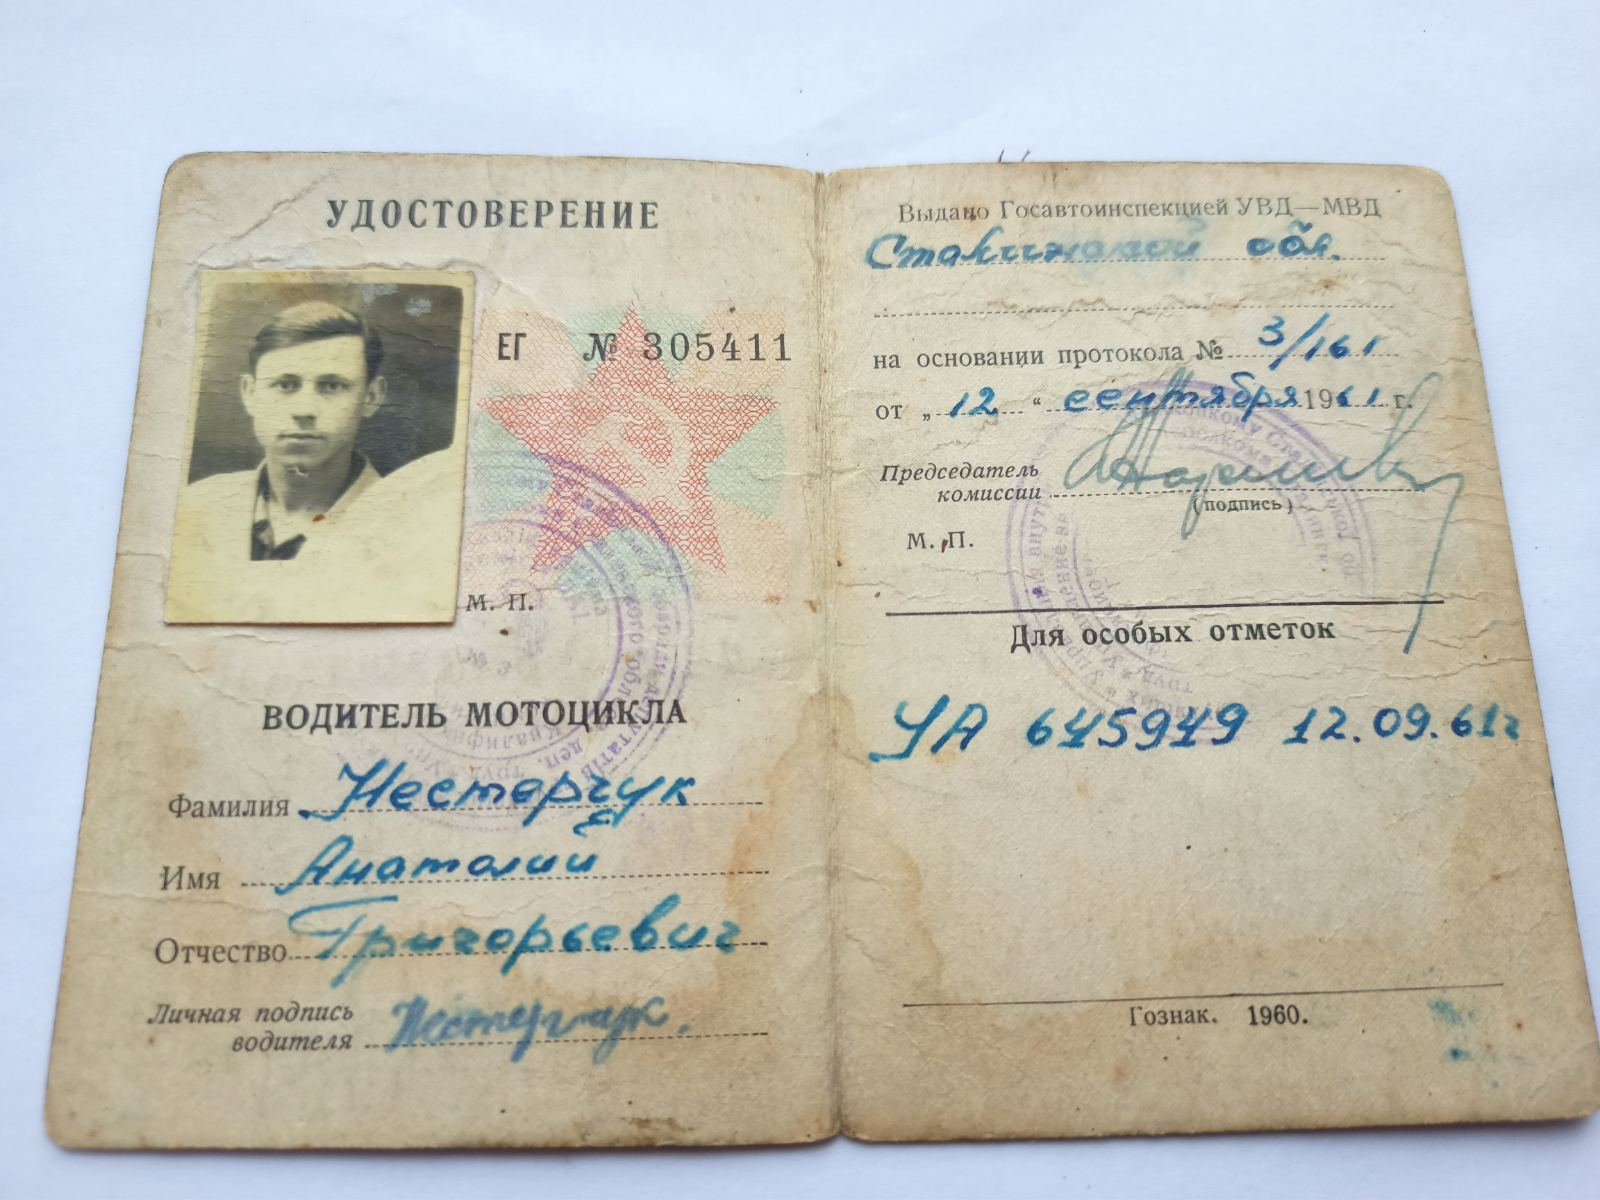 УДОСТОВЕРЕНИЕ
ЕГ № 305411
М. П.
ВОДИТЕЛЬ МОТОЦИКЛА
Фамилия Нестерчук
Имя Анатолий
Отчество Григорьевич
Личная подпись
водителя Нестерчук.
Выдано Госавтоинспекцией УВД—МВД
Сталинской обл.
на основании протокола № 3/161
от „ 12 “ сентября 1961 г.
Председатель
комиссии
(подпись)
М. П.
Для особых отметок
УА 645949 12.09.61г
Гознак. 1960.